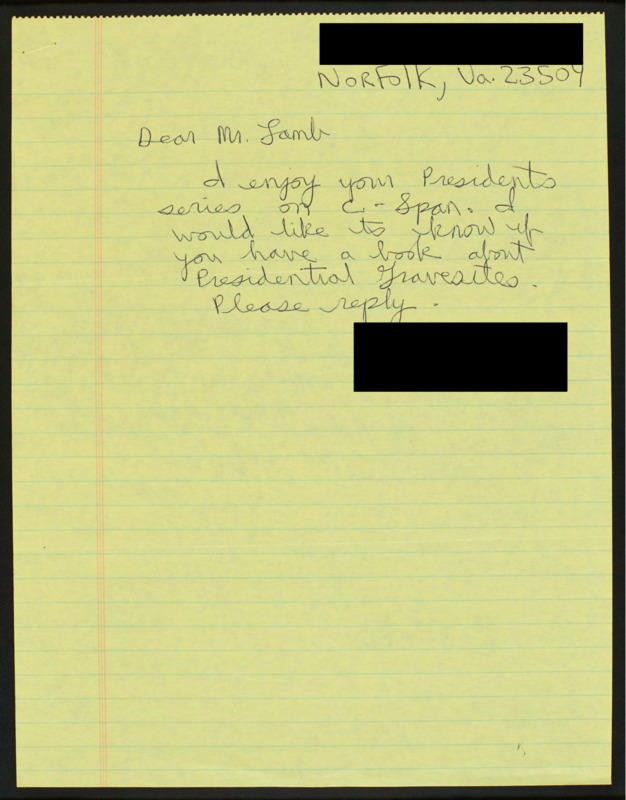 Norfolk, Va. 23504
Dear Mr. Lamb
I enjoy your Presidents
series on C-Span. I
would like to know if
you have a book about
Presidential Gravesites.
Please reply.